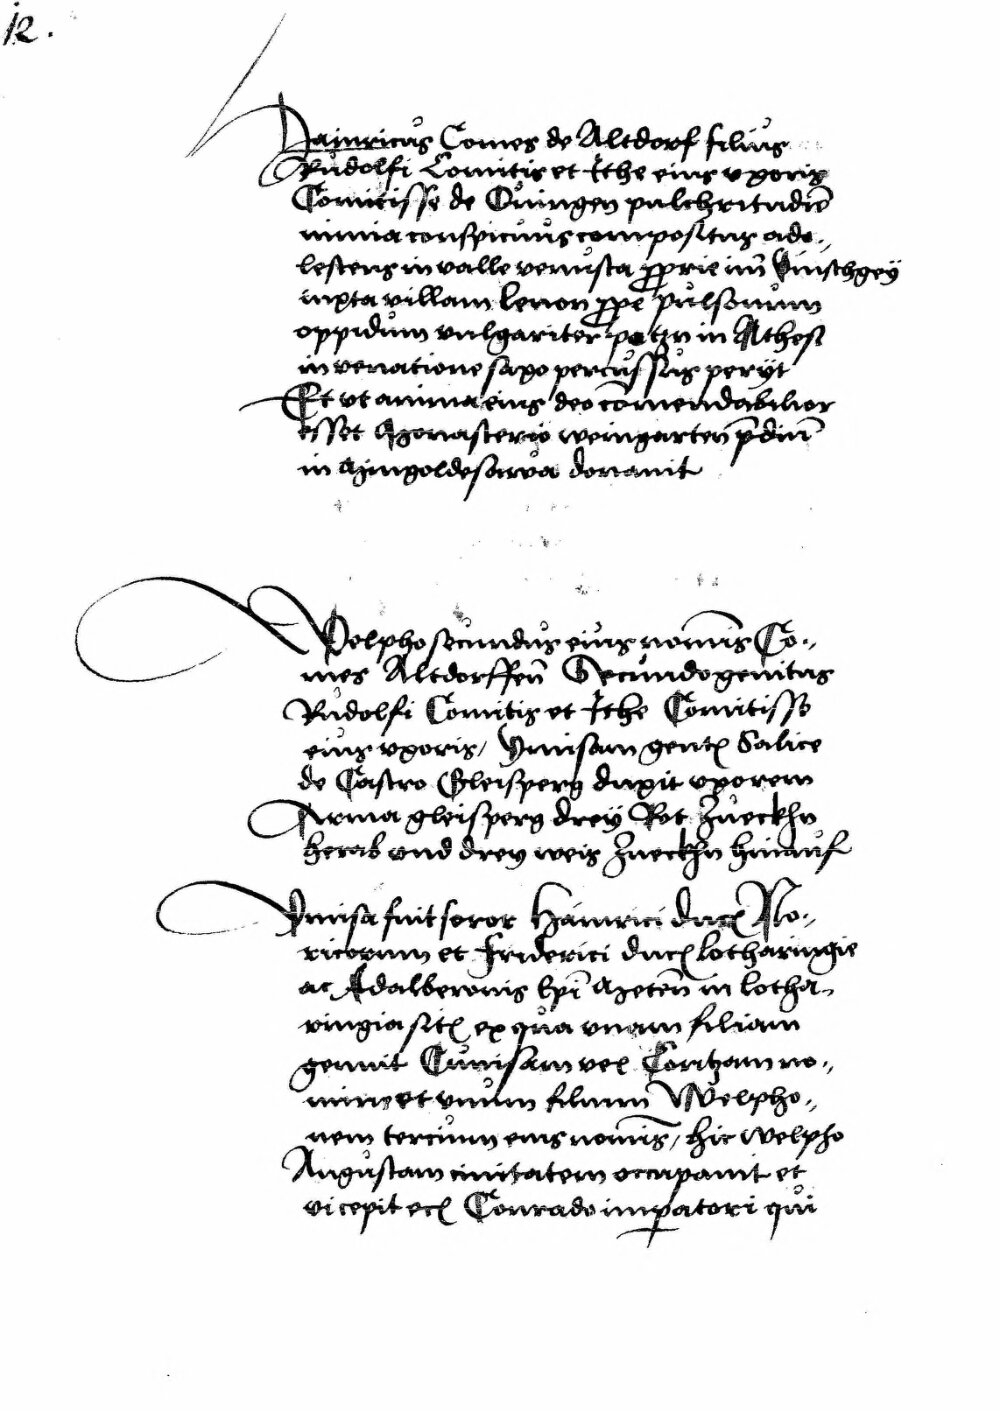 12.
Hainricus Comes de Altdorf filius
Rudolfi Comitis et Ithe eius vxoris
Comitisse de Öningen pulchritudīe
nimia conspicuus compositus ado„
lescens in valle venusta ꝓprie im̄ Vinschgeÿ
iuxta villam lenon ꝓpe pulsonum
oppidum vulgariter patzn in Athesi
in venatione saxo percussus perÿt
Et vt anima eius deo cōmendabilior
esset Monasterio weingarten p̄diū
in Mingoldesarva donauit
Welpho secundus eius nomīs Co„
mes Altdorffen̄ Secundogenitus
Rudolfi Comitis et Ithe Comitisse
eius vxoris, Ymisam gentꝭ Salice
de Castro Gleisperg duxit vxorem
Arma gleisperg dreÿ Rot Zueckhn
herab vnd dreÿ weis Zueckhn hinauf
Ymisa fuit soror Hainrici ducꝭ No„
ricorum et Friderici ducꝭ lotharingie
ac Adalberonis Ep̄i Meten̄ in lotha„
ringia sitꝭ ex qua vnam filiam
genuit Cunisam vel Coritzam no„
mine et vnum filium Welpho„
nem tercium eius nomīs, hic welpho
Augustam ciuitatem occupauit et
vi cepit ecꝭ Conrado imꝑatori qui